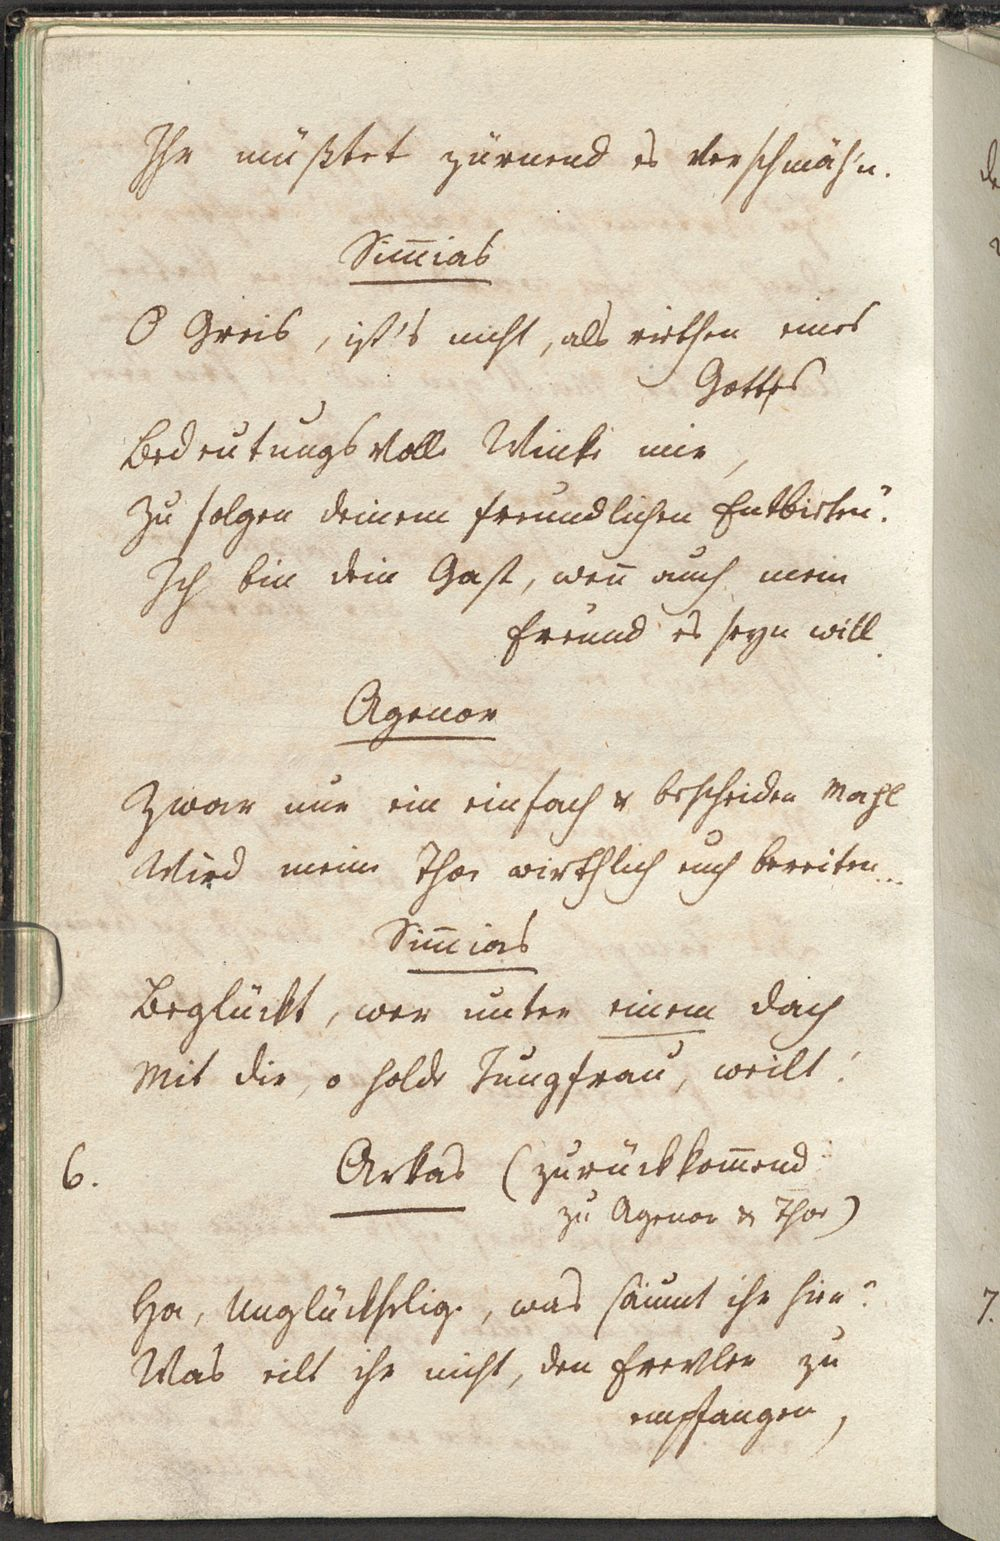 Ihr müßtet zürnend es verschmäh'n.
Sim̄ias
O Greis, ist's nicht, als riethen eines
Gottes
Bedeutungsvolle Winke mir,
Zu folgen deinem freundlichen Entbieten?
Ich bin dein Gast, wen̄ auch mein
Freund es seyn will.
Agenor
Zwar nur ein einfach & bescheiden Mahl
Wird meine Thoe wirthlich euch bereiten...
Sim̄ias
Beglückt, wer unter einem Dach
Mit dir, o holde Jungfrau, weilt!
6.
Arkas (zurückkom̄end
zu Agenor & Thoe)
Ha, Unglückselige, was säumt ihr hier?
Was eilt ihr nicht, den Frevler zu
empfangen,
7.